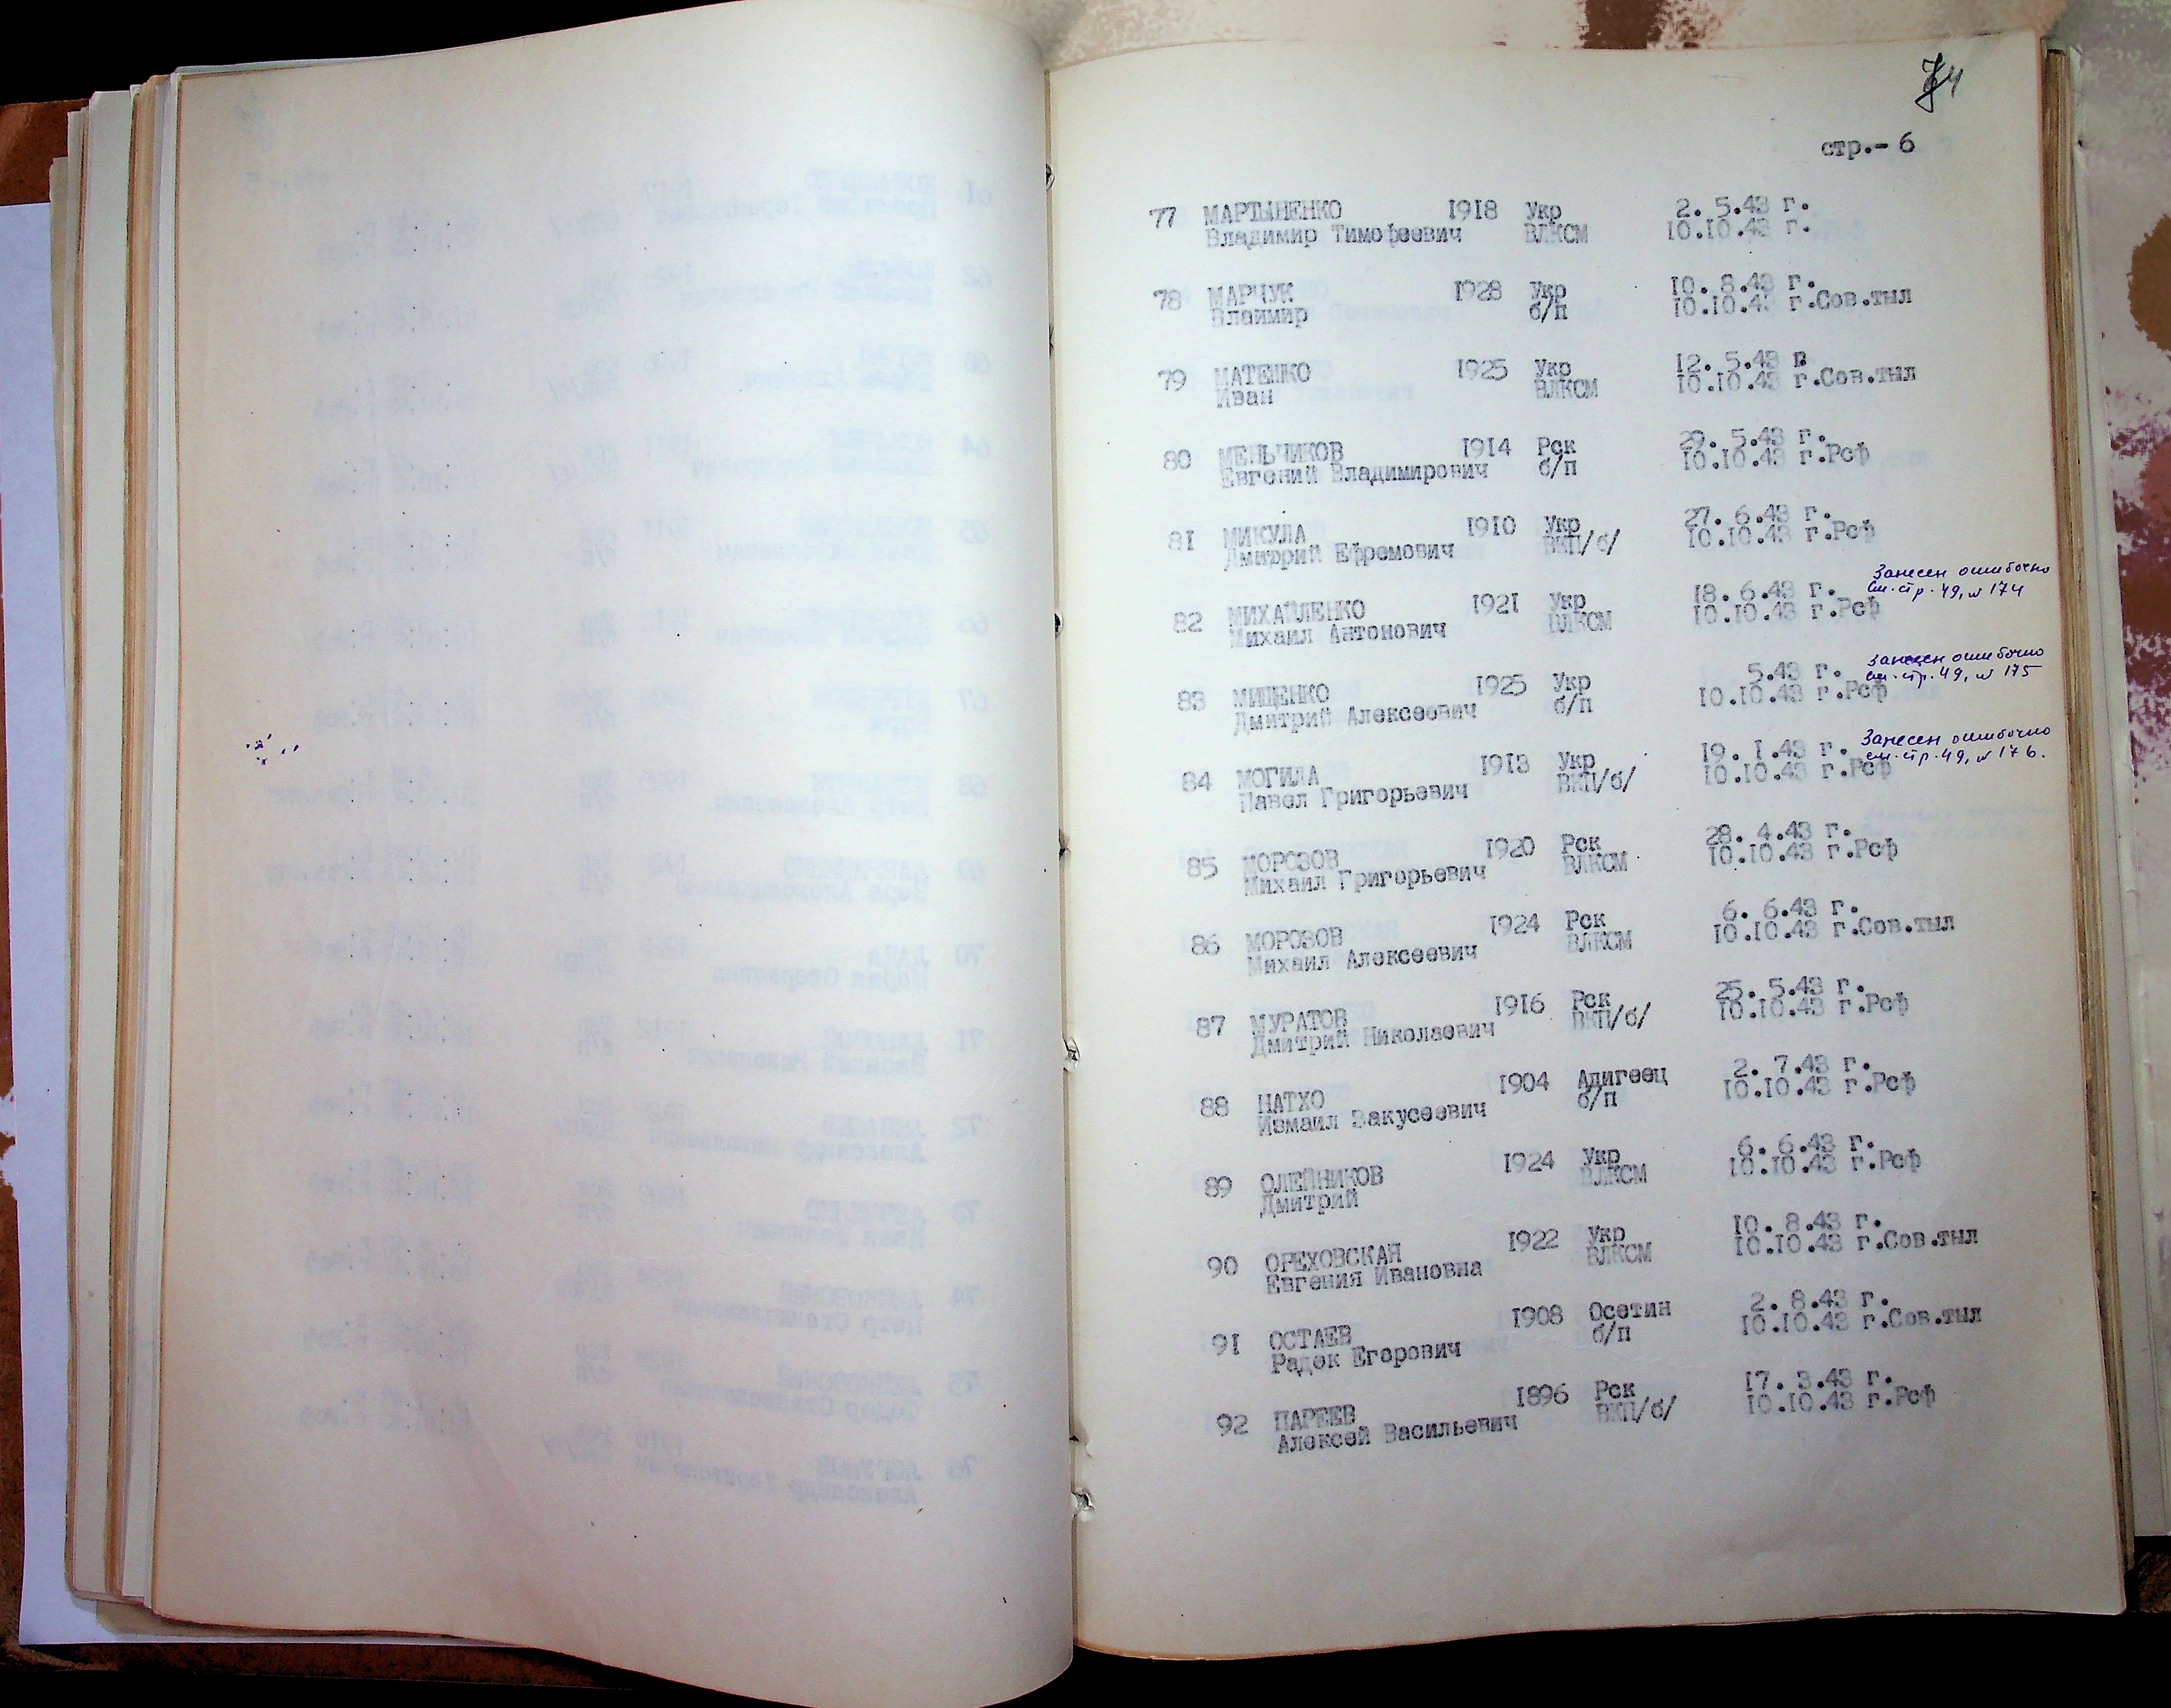 стр.- 6
77 МАРТЫНЕНКО 1918 Укр 2. 5.43 г.
Владимир Тимофеевич ВЛКСМ 10.10.43 г.
78 МАРЧУК 1928 Укр 10. 8.43 г.
Влаимир б/п 10.10.43 г.Сов.тыл
79 МАТЕНКО 1925 Укр 12. 5.43 г
Иван ВЛКСМ 10.10.43 г.Сов.тыл
80 МЕНЬЧИКОВ 1914 Рск 29. 5.43 г.
Евгений Владимирович б/п 10.10.43 г.Рсф
81 МИКУЛА 1910 Укр 27. 6.43 г.
Дмитрий Ефремович ВКП/б/ 10.10.43 г.Рсф
82 МИХАЙЛЕНКО 1921 Укр 18. 6.43 г. Занесен ошибочно
Михаил Антонович ВЛКСМ 10.10.43 г.Рсф см.стр.49, № 174
83 МИЩЕНКО 1925 Укр 5.43 г. Занесен ошибочно
Дмитрий Алексеевич б/п 10.10.43 г.Рсф см.стр.49, № 175
84 МОГИЛА 1913 Укр 19. 1.43 г. Занесен ошибочно
Павел Григорьевич ВКП/б/ 10.10.43 г.Рсф см.стр.49, № 176.
85 МОРОЗОВ 1920 Рск 28. 4.43 г.
Михаил Григорьевич ВЛКСМ 10.10.43 г.Рсф
86 МОРОЗОВ 1924 Рск 6. 6.43 г.
Михаил Алексеевич ВЛКСМ 10.10.43 г.Сов.тыл
87 МУРАТОВ 1916 Рск 25. 5.43 г.
Дмитрий Николаевич ВКП/б/ 10.10.43 г.Рсф
88 НАТХО 1904 Адигеец 2. 7.43 г.
Измаил Закусеевич б/п 10.10.43 г.Рсф
89 ОЛЕЙНИКОВ 1924 Укр 6. 6.43 г.
Дмитрий ВЛКСМ 10.10.43 г.Рсф
90 ОРЕХОВСКАЯ 1922 Укр 10. 8.43 г.
Евгения Ивановна ВЛКСМ 10.10.43 г.Сов.тыл
91 ОСТАЕВ 1908 Осетин 2. 8.43 г.
Радек Егорович б/п 10.10.43 г.Сов.тыл
92 ПАРЕЕВ 1896 Рск 17. 3.43 г.
Алексей Васильевич ВКП/б/ 10.10.43 г.Рсф